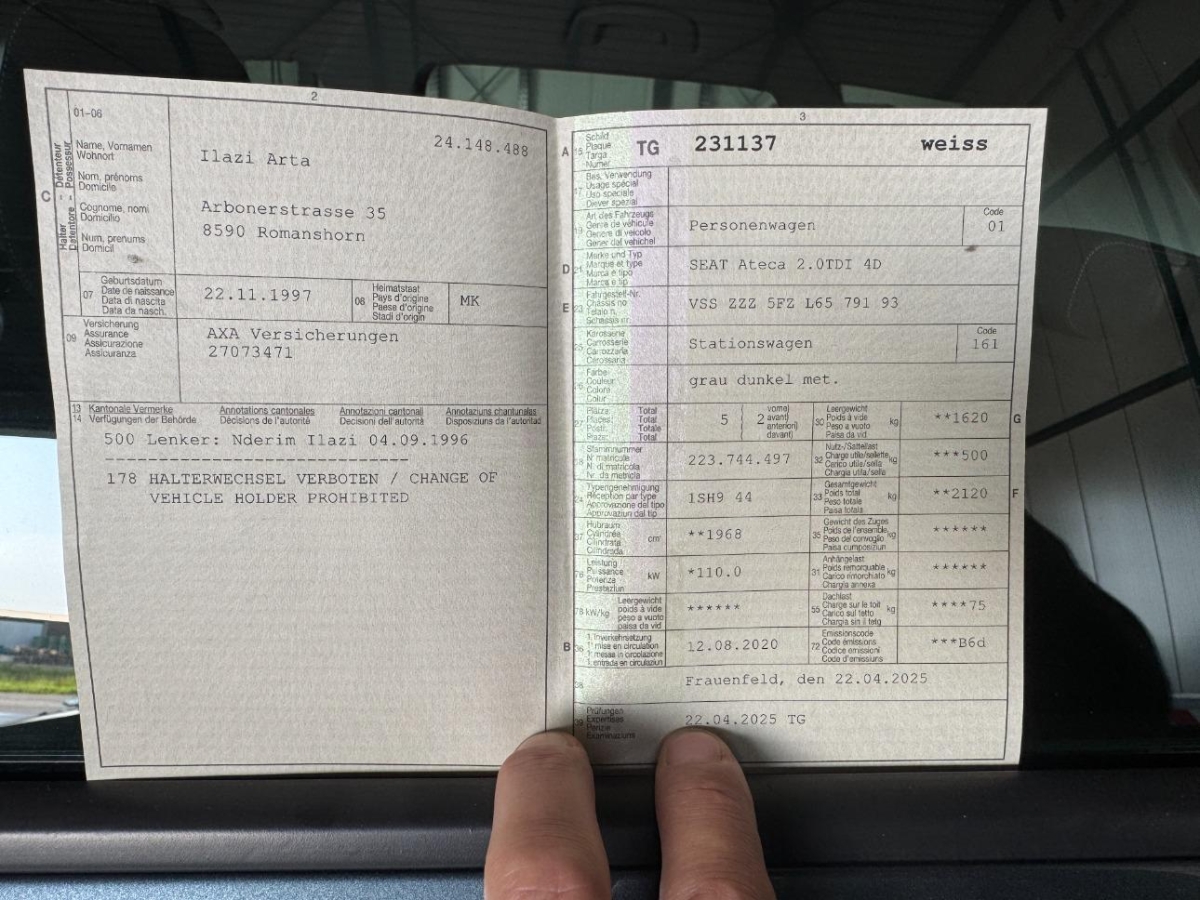 2
01-06
24.148.488
C
Halter - Détenteur
Detentore - Possessur
Name, Vornamen
Wohnort
Nom, prénoms
Domicile
Cognome, nomi
Domicilio
Num, prenums
Domicil
Ilazi Arta
Arbonerstrasse 35
8590 Romanshorn
07
Geburtsdatum
Date de naissance
Data di nascita
Data da nasch.
22.11.1997
08
Heimatstaat
Pays d'origine
Paese d'origine
Stadi d'origin
MK
09
Versicherung
Assurance
Assicurazione
Assicuranza
AXA Versicherungen
27073471
13 Kantonale Vermerke Annotations cantonales Annotazioni cantonali Annotaziuns chantunalas
14 Verfügungen der Behörde Décisions de l'autorité Decisioni dell'autorità Disposiziuns da l'autoritad
500 Lenker: Nderim Ilazi 04.09.1996
------------------------------
178 HALTERWECHSEL VERBOTEN / CHANGE OF
VEHICLE HOLDER PROHIBITED
3
A 15
Schild
Plaque
Targa
Numer
TG 231137 weiss
17
Bes. Verwendung
Usage spécial
Uso speciale
Diever spezial
19
Art des Fahrzeugs
Genre de véhicule
Genere di veicolo
Gener dal vehichel
Personenwagen
Code
01
D 21
Marke und Typ
Marque et type
Marca e tipo
Marca e tip
SEAT Ateca 2.0TDI 4D
E 23
Fahrgestell-Nr.
Châssis no
Telaio n.
Schassis nr.
VSS ZZZ 5FZ L65 791 93
25
Karosserie
Carrosserie
Carrozzeria
Carossaria
Stationswagen
Code
161
26
Farbe
Couleur
Colore
Colur
grau dunkel met.
27
Plätze Total
Places: Total
Posti: Totale
Plazs: Total
5
2
vorne)
avant)
anteriori)
davant)
30
Leergewicht
Poids à vide
Peso a vuoto
Paisa da vid
kg
**1620
G
18
Stammnummer
N° matricule
N. di matricola
Nr. da matricla
223.744.497
32
Nutz-/Sattellast
Charge utile/sellette
Carico utile/sella
Chargia utila/sella
kg
***500
24
Typengenehmigung
Réception par type
Approvazione del tipo
Approvaziun dal tip
1SH9 44
33
Gesamtgewicht
Poids total
Peso totale
Paisa totala
kg
**2120
F
37
Hubraum
Cylindrée
Cilindrata
Cilindrada
cm³
**1968
35
Gewicht des Zuges
Poids de l'ensemble
Peso del convoglio
Paisa cumposiziun
kg
******
76
Leistung
Puissance
Potenza
Prestaziun
kW
*110.0
31
Anhängelast
Poids remorquable
Carico rimorchiato
Chargia annexa
kg
******
78 kW/kg
Leergewicht
poids à vide
peso a vuoto
paisa da vid
******
55
Dachlast
Charge sur le toit
Carico sul tetto
Chargia sin il tetg
kg
****75
B 36
1. Inverkehrsetzung
1re mise en circulation
1a messa in circolazione
1. entrada en circulaziun
12.08.2020
72
Emissionscode
Code émissions
Codice emissioni
Code d'emissiuns
***B6d
38
Frauenfeld, den 22.04.2025
39
Prüfungen
Expertises
Perizie
Examinaziuns
22.04.2025 TG